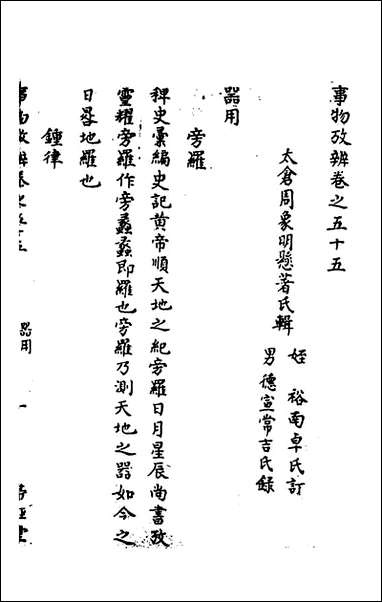 事物攷辨卷之五十五
太倉周象明懸著氏輯
姪 裕南卓氏訂
男德宣常吉氏錄
器用
旁羅
稗史彙編史記黄帝順天地之紀旁羅日月星辰尚書攷
靈耀旁羅作旁蠡蠡即羅也旁羅乃測天地之器如今之
日晷地羅也
鍾律
事物攷辨卷之五十五
器用
一